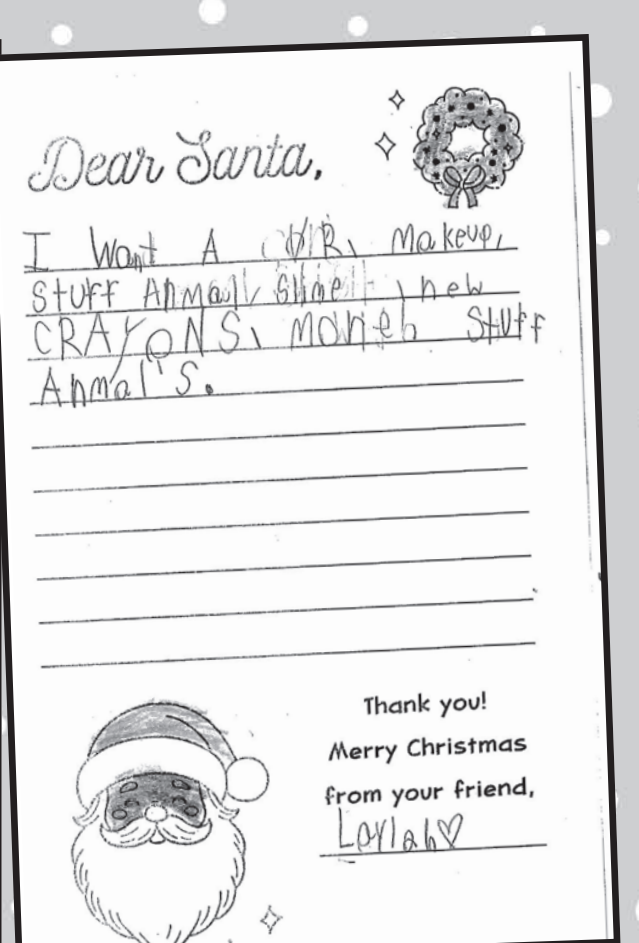 Dear Santa,
I Want A VR, Makeup,
Stuff Anmal, Slime, new
CRAYONS, Stuff
Anmal's.
Thank you!
Merry Christmas
from your friend,
Laylah♡